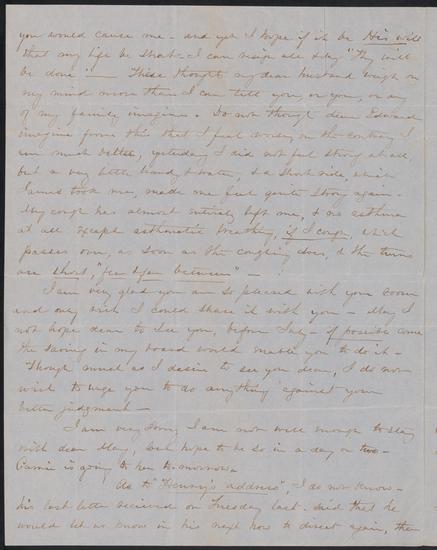 you would cause me - and yet I hope if it be His will
that my life be short - I can resign all & say "Thy will
be done" - These thoughts my dear husband weigh on
my mind more than I can tell you, or you, or any
of my family imagine. Do not though dear Edward
imagine from this that I feel worse, on the contrary I
am much better, yesterday I did not feel strong at all,
but a very little brandy & water, & a short ride, which
James took me, made me feel quite strong again -
My cough has almost entirely left me, & no asthma
at all except asthmatic breathing, if I cough, which
passes over, as soon as the coughing does, & the turns
are short, "few & far between" -
I am very glad you are so pleased with your room
and only wish I could share it with you - May I
not hope dear to see you, before July - if possible come
the saving in my board would enable you to do it -
Though much as I desire to see you dear, I do not
wish to urge you to do anything against your
better judgment -
I am very sorry I am not well enough to stay
with dear Mary, but hope to be so in a day or two -
Carrie is going to her to-morrow.
As to "Henry's address", I do not know -
his last letter received on Tuesday last. said that he
would let us know in his next how to direct again, then